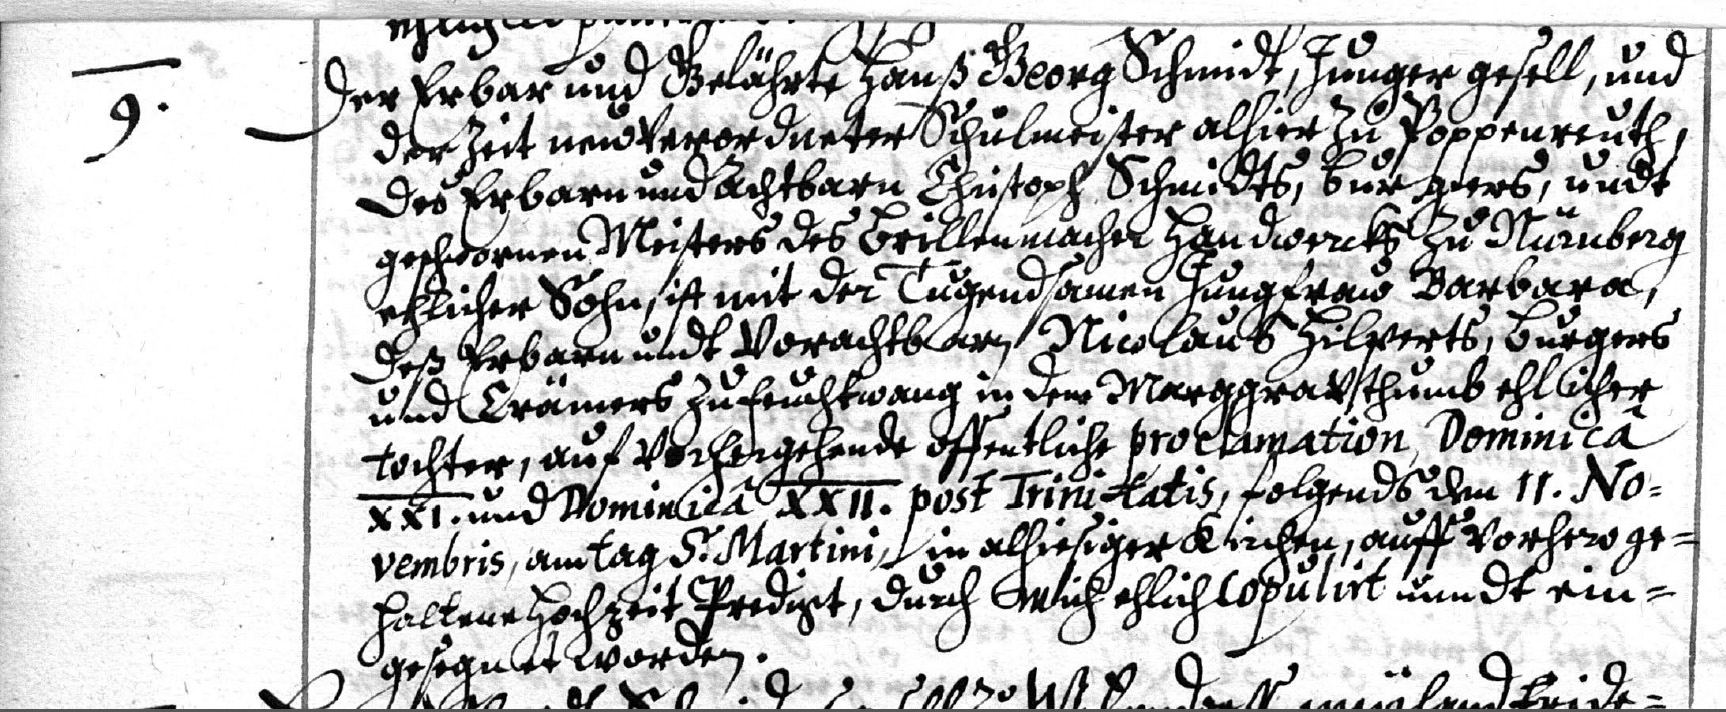 9.
Der Erbar und Gelährte Hanß Georg Schmidt, Junger gesell, und
der Zeit neuverordneter Schulmeister alhier zu Poppenreuth,
des Erbarn und Achtbarn Christoph Schmidts, burgers, undt
geschwornen Meisters des Brillenmacher Handwercks zu Nürnberg
ehlicher Sohn, ist mit der Tugendsamen Jungfraw Barbara,
deß Erbarn undt Vorachtbarn Nicolaus Hilperts, burgers
und Crämers zu Feuchtwang in dem Marggravthumb ehlicher
tochter, auf vorhergehende offentliche proclamation, Dominicâ
XXI. und Dominicâ XXII. post Trinitatis, folgends den 11. No=
vembris, am tag S. Martini, in alhiesiger Kirchen, auff vorhero ge=
haltene Hochzeit Predigt, durch mich ehlich copulirt unndt ein=
gesegnet worden.